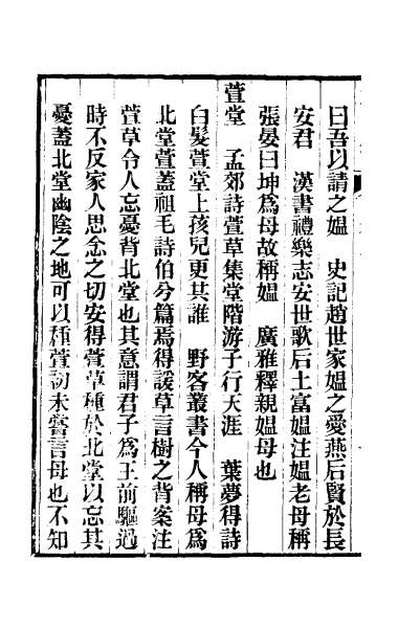 曰吾以請之媼　史記趙世家媼之愛燕后賢於長
安君　漢書禮樂志安世歌后土富媼注媼老母稱
張晏曰坤爲母故稱媼　廣雅釋親媼母也
萱堂　孟郊詩萱草集堂階游子行天涯　葉夢得詩
白髮萱堂上孩兒更共誰　野客叢書今人稱母爲
北堂萱蓋祖毛詩伯兮篇焉得諼草言樹之背案注
萱草令人忘憂背北堂也其意謂君子爲王前驅過
時不反家人思念之切安得萱草種於北堂以忘其
憂蓋北堂幽陰之地可以種萱初未嘗言母也不知